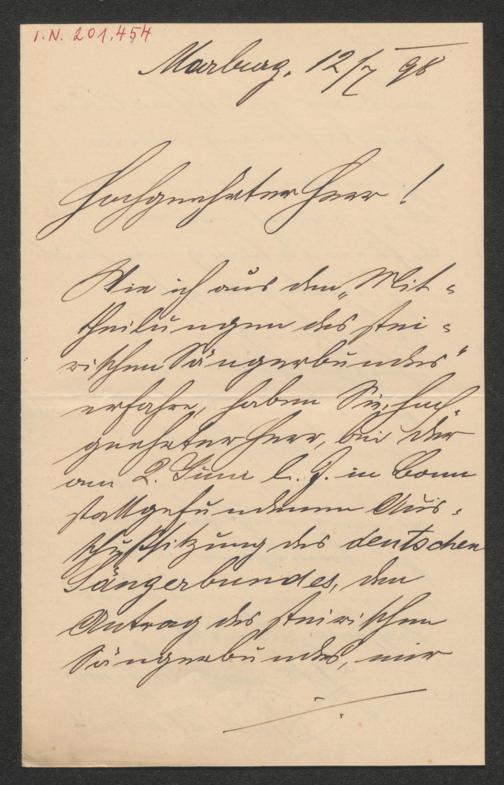 I.N. 201.454
Marburg, 12/7 98
Hochgeehrter Herr!
Wie ich aus den „Mit-
theilungen des stei-
rischen Sängerbundes"
erfahre, haben Sie, hoch-
geehrter Herr, bei der
am 2. Juni l. J. in Bonn
stattgefundenen Aus-
schußsitzung des deutschen
Sängerbundes, den
Antrag des steirischen
Sängerbundes, mir